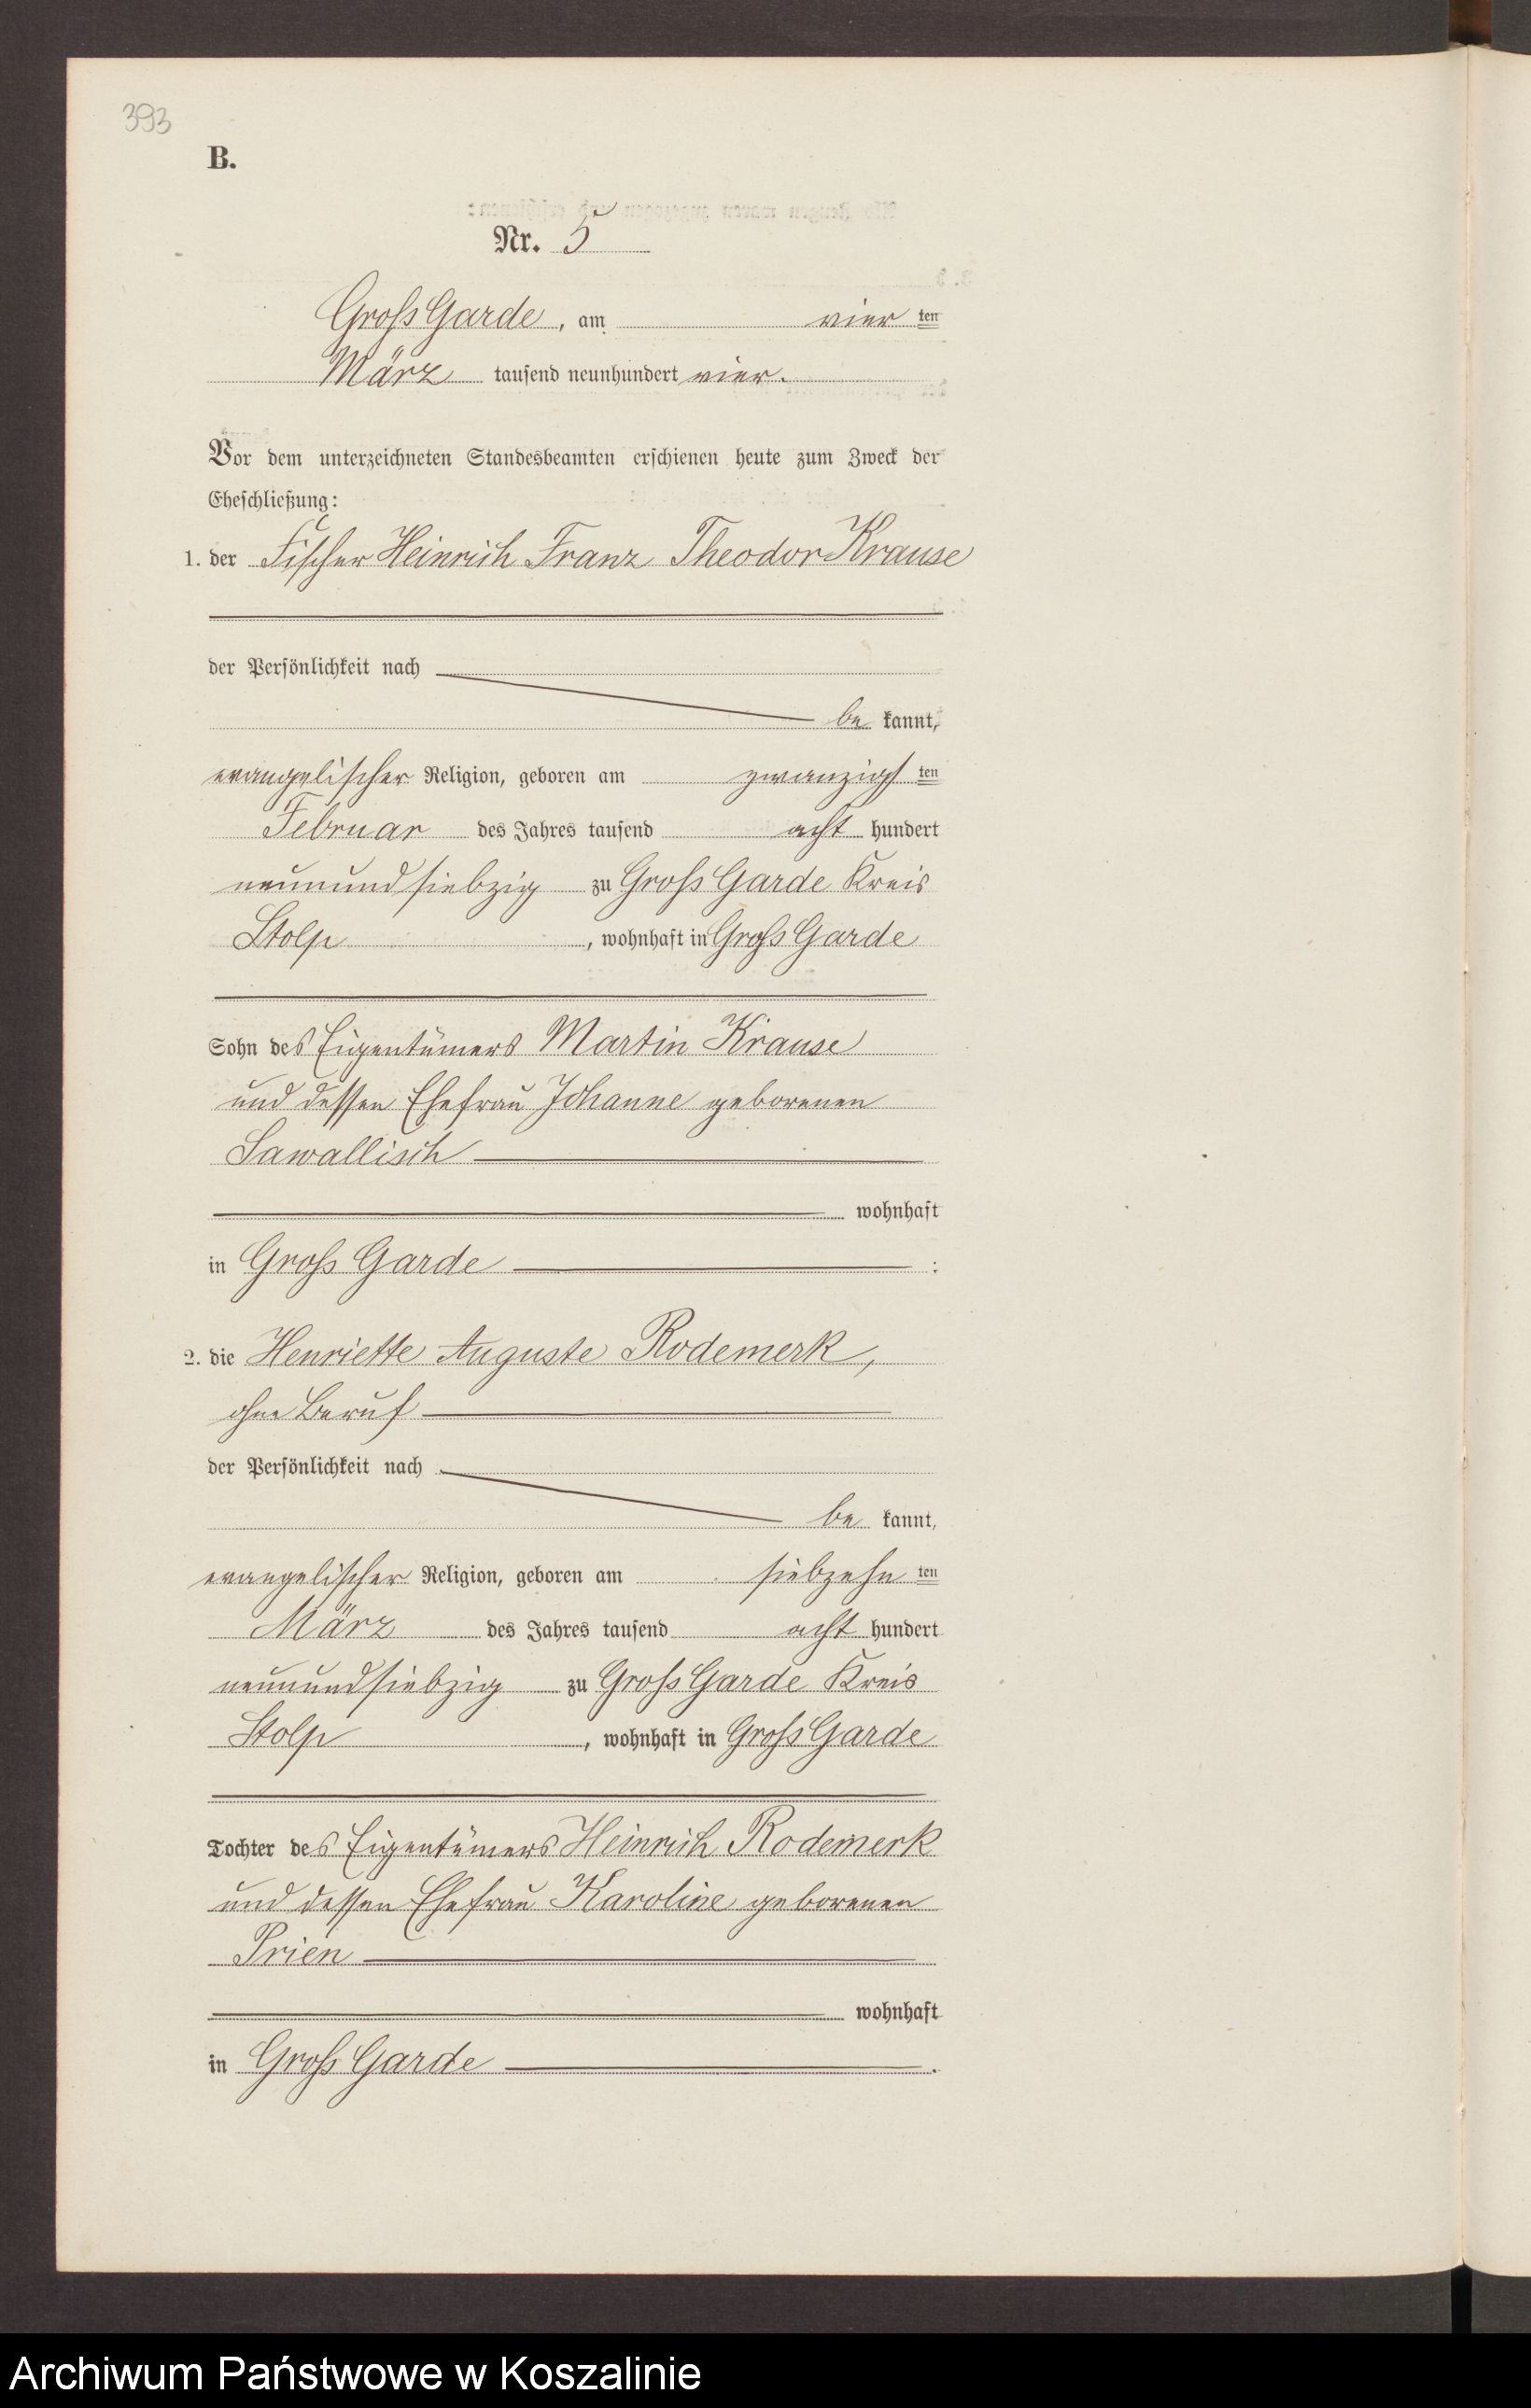 393
B.
Nr. 5
Gross Garde, am vier ten
März tausend neunhundert vier.
Vor dem unterzeichneten Standesbeamten erschienen heute zum Zweck der
Eheschließung:
1. der Fischer Heinrich Franz Theodor Krause
der Persönlichkeit nach
be kannt,
evangelischer Religion, geboren am zwanzigsten
Februar des Jahres tausend acht hundert
neunundsiebzig zu Gross Garde Kreis
Stolp, wohnhaft in Gross Garde
Sohn des Eigentümers Martin Krause
und dessen Ehefrau Johanne geborenen
Sawallisch
wohnhaft
in Gross Garde :
2. die Henriette Auguste Rodemerk,
ohne Beruf
der Persönlichkeit nach
be kannt,
evangelischer Religion, geboren am siebzehn ten
März des Jahres tausend acht hundert
neunundsiebzig zu Gross Garde Kreis
Stolp, wohnhaft in Gross Garde
Tochter des Eigentümers Heinrich Rodemerk
und dessen Ehefrau Karoline geborenen
Prien
wohnhaft
in Gross Garde .
Archiwum Państwowe w Koszalinie